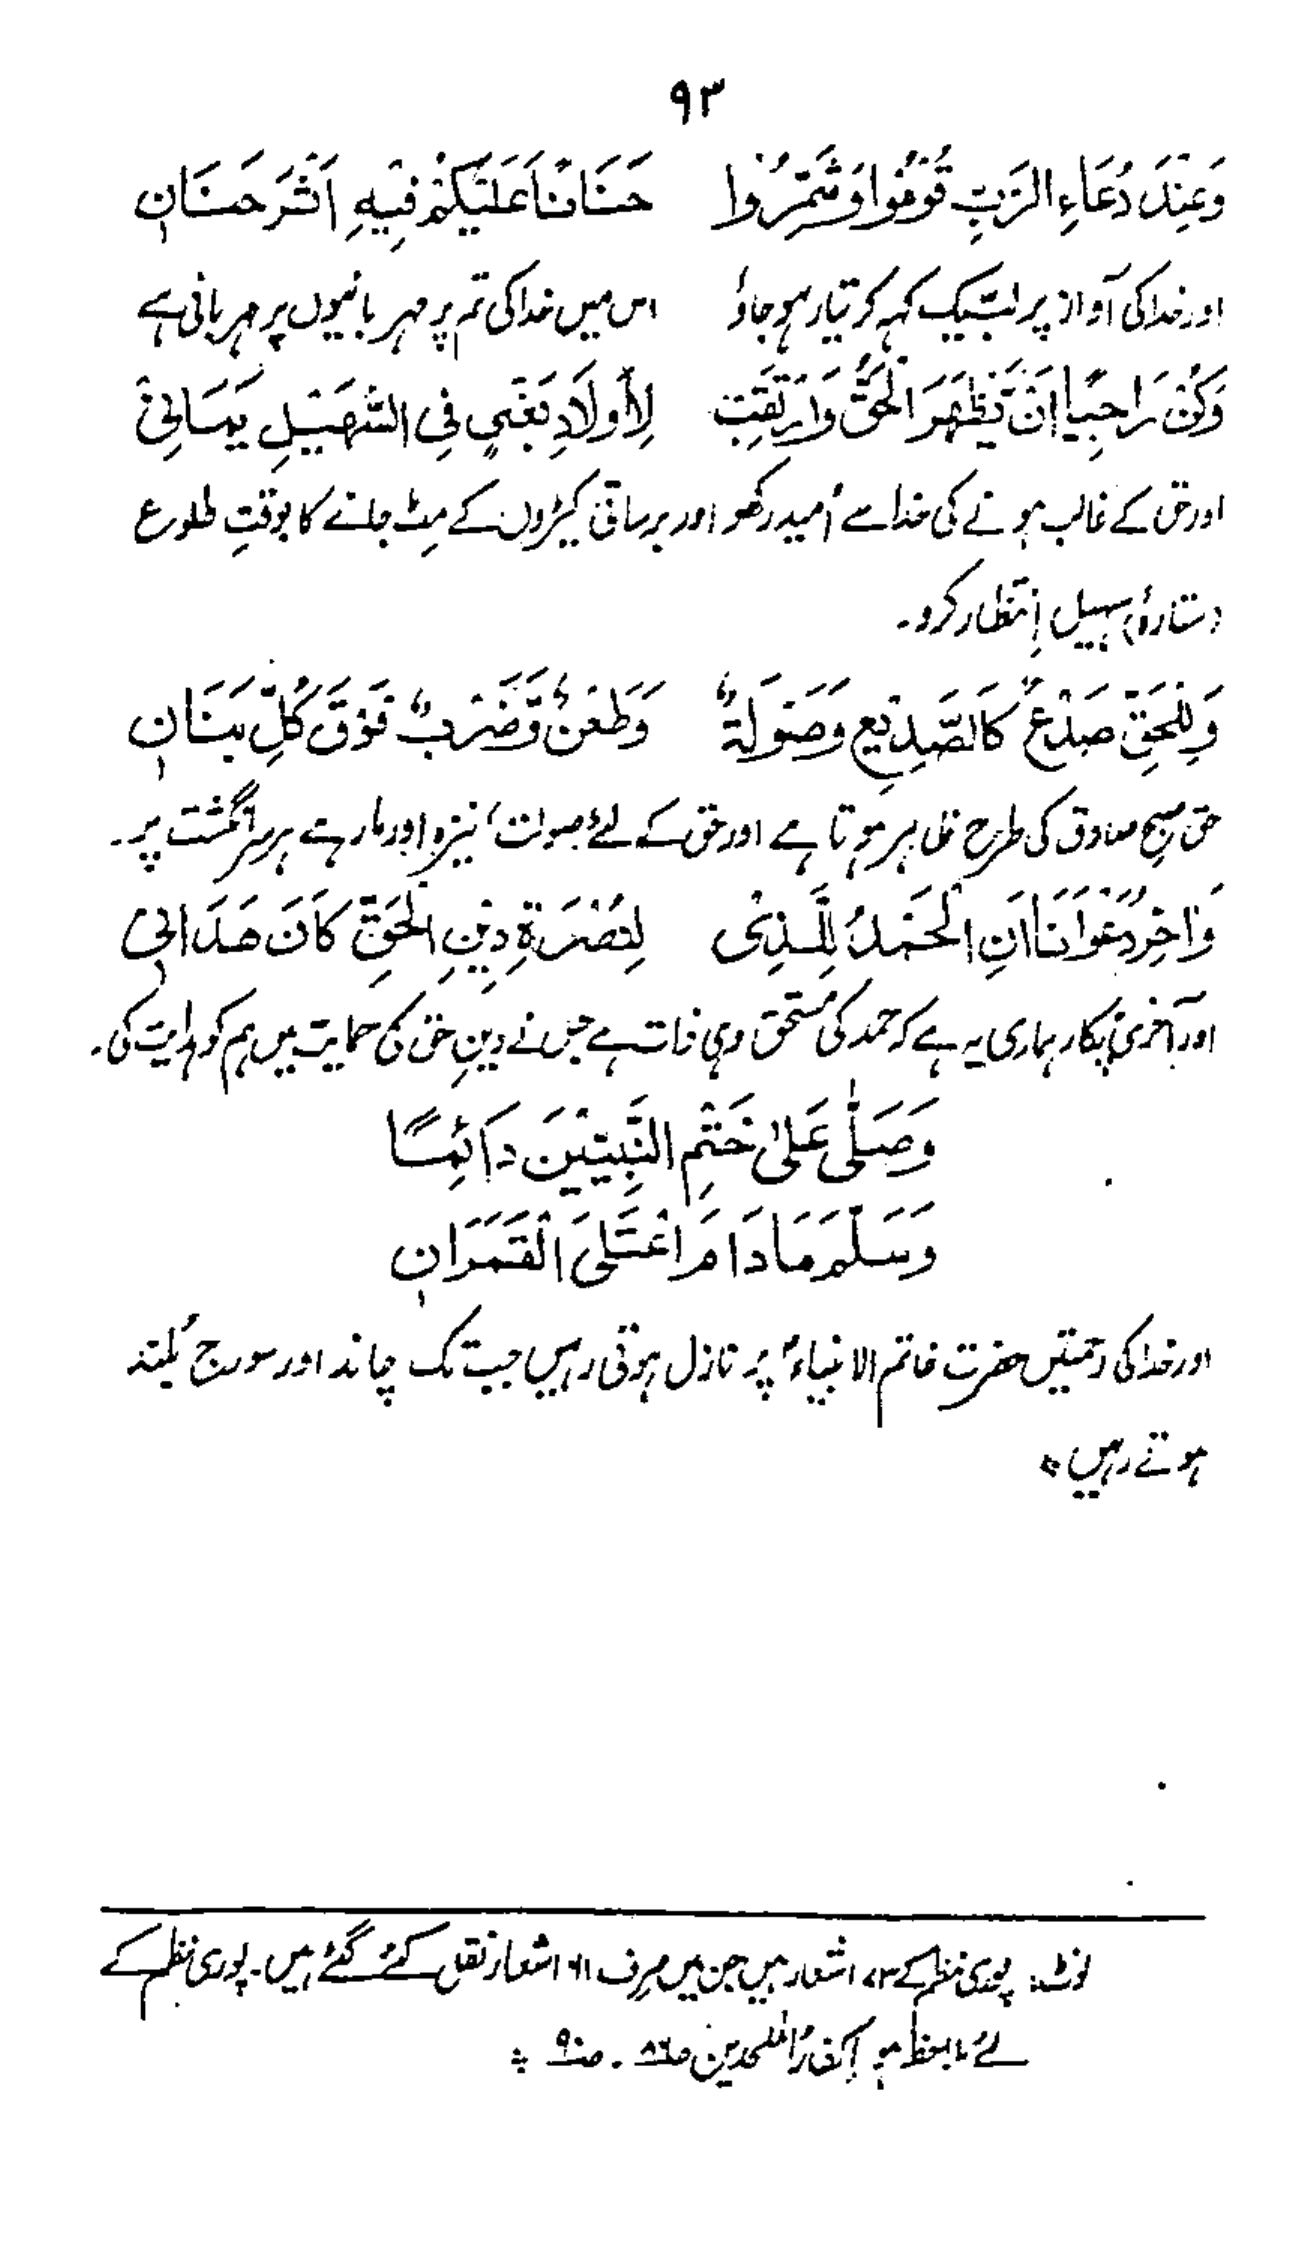 ۹۳
وَعِنْدَ دُعَاءِ الرَّبِّ قُوْمُوْا وَشَمِّرُوْا    حَنَانًا عَلَيْكُمْ فِيْهِ اَثْرَ حَنَانٖ
اور خدا کی آواز پر لبّیک کہہ کر تیار ہو جاؤ    اس میں خدا کی تم پر مہربانیوں پر مہربانی ہے
وَكُنْ رَاجِيًا اَنْ يَّظْهَرَ الْحَقُّ وَارْتَقِبْ    لِاَوْلَادِ بَغْيٍ فِي السُّهَيْلِ يَمَانِيْ
اور حق کے غالب ہونے کی خدا سے اُمید رکھو اور برساتی کیڑوں کے مِٹ جانے کا بوقتِ طلوع
(ستارۂ) سہیل اِنتظار کرو۔
وَلِلْحَقِّ صَدْعٌ كَالصَّدِيْعِ وَصَوْلَةٌ    وَطَعْنٌ وَّضَرْبٌ فَوْقَ كُلِّ بَنَانٖ
حق صبح صادق کی طرح ظاہر ہوتا ہے اور حق کے لئے صولت، نیزہ اور مار ہے ہر سرِ انگشت پر۔
وَاٰخِرُ دَعْوَانَا اَنِ الْحَمْدُ لِلَّذِيْ    لِنُصْرَةِ دِيْنِ الْحَقِّ كَانَ هَدَانِيْ
اور آخری پکار ہماری یہ ہے کہ حمد کی مستحق وہی ذات ہے جس نے دینِ حق کی حمایت میں ہم کو ہدایت کی۔
وَصَلّٰى عَلٰى خَتْمِ النَّبِيِّيْنَ دَائِمًا
وَسَلَّمَ مَادَامَ اعْتَلَى الْقَمَرَانٖ
اور خدا کی رحمتیں حضرت خاتم الانبیاءؐ پر نازل ہوتی رہیں جب تک چاند اور سورج بُلند
ہوتے رہیں ٭
نوٹ: پوری نظم کے ۷۳ اشعار ہیں جن میں صرف اشعار نقل کئے گئے ہیں۔ پوری نظم کے
لئے ملاحظہ ہو اِکفارُ الملحدین ص۸۶ ۔ ص۹۰ ٭